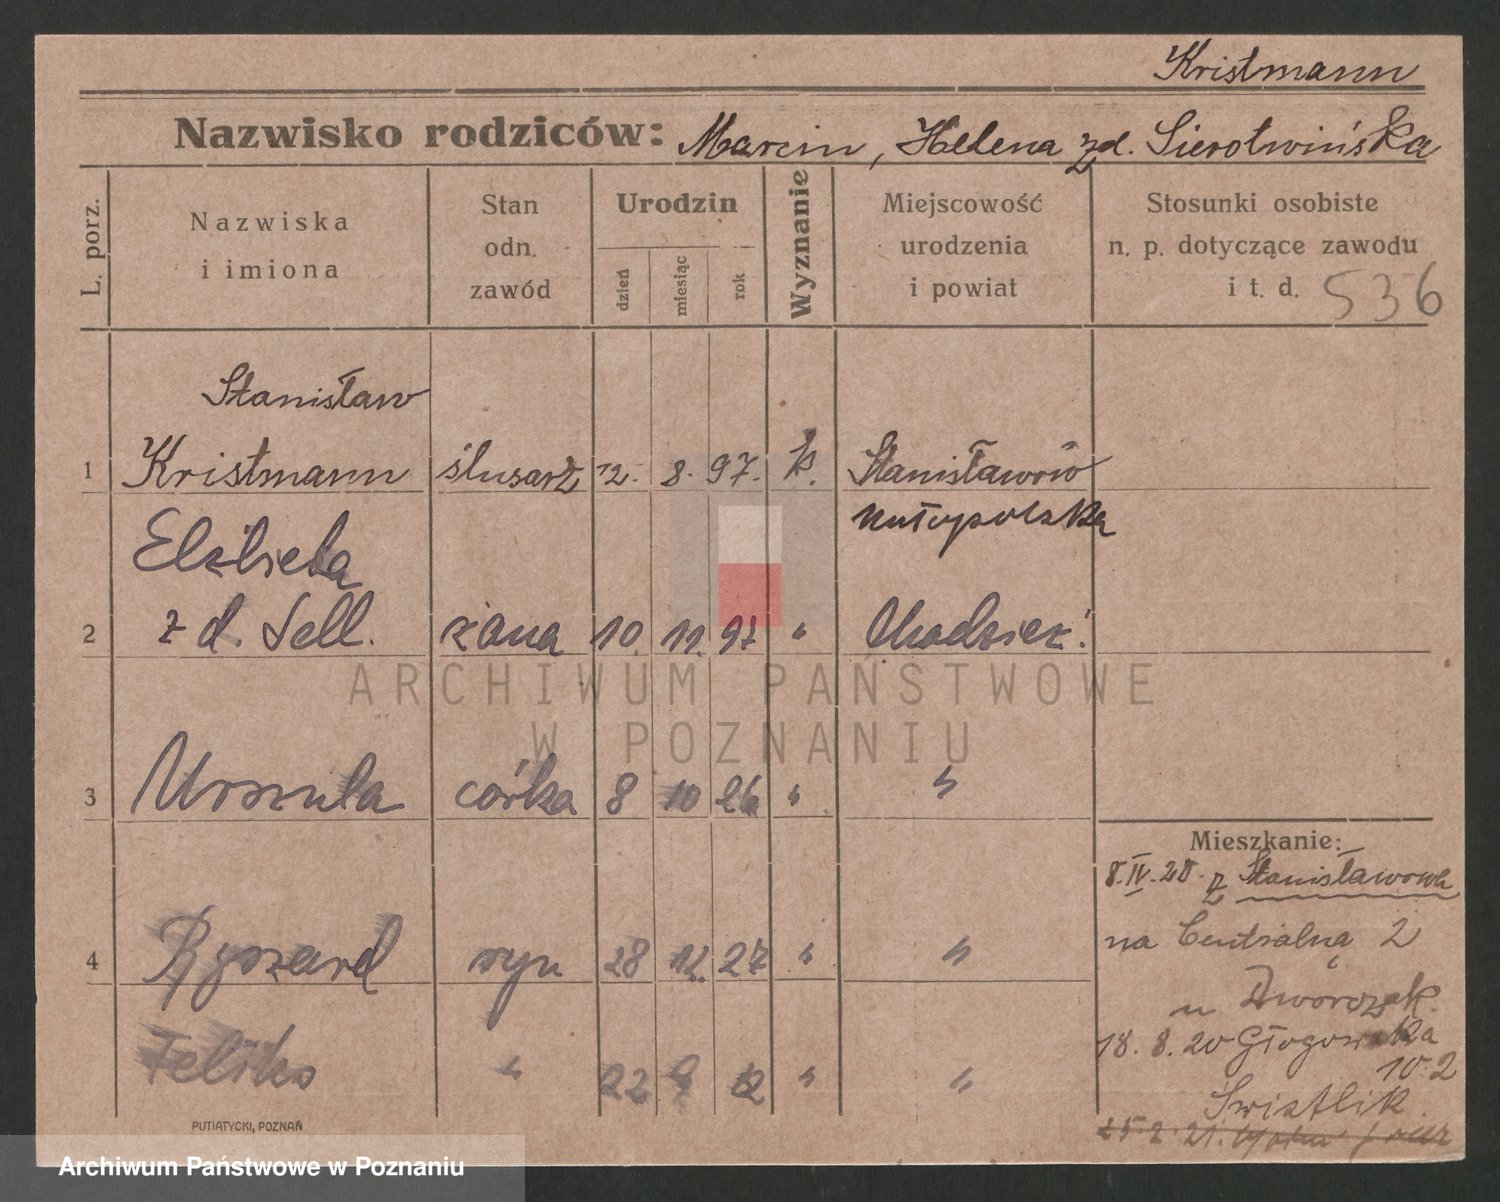 Kristmann
Nazwisko rodziców: Marcin, Helena z d. Sierotwińska
L. porz.
Nazwiska
i imiona
Stan
odn.
zawód
Urodzin
dzień
miesiąc
rok
Wyznanie
Miejscowość
urodzenia
i powiat
Stosunki osobiste
n. p. dotyczące zawodu
i t. d. 536
Stanisław
1 Kristmann ślusarz 12. 8. 97. k. Stanisławów
Małopolska
Elżbieta
2 z d. Sell. żona 10. 11. 97 " Chodzież.
3 Urszula córka 8 10 26 " "
Mieszkanie:
8.IV.20. z Stanisławowa
4 Ryszard syn 28 12. 27 " "
na Centralną 2
u Dworczak.
Feliks " 22 "  "
18. 8. 20 Głogowska
10.2
Swistlik
PUTIATYCKI, POZNAŃ
ARCHIWUM PAŃSTWOWE
W POZNANIU
Archiwum Państwowe w Poznaniu